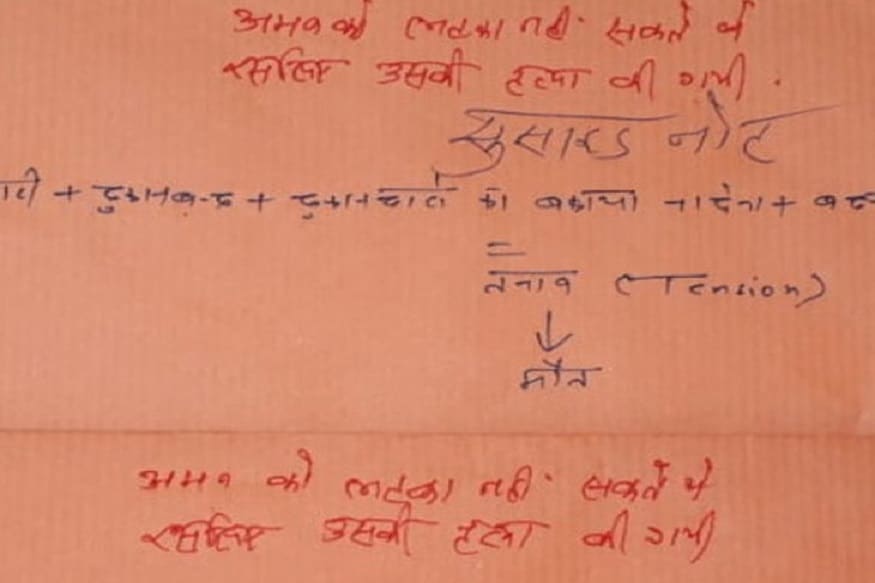 अमन को लटका नहीं सकते थे
इसलिए उसकी हत्या की गयी .
सुसाइड नोट
+ दुकानबन्द + दुकानदारों का बकाया ना देना +
=
तनाव (Tension)
↓
मौत
अमन को लटका नहीं सकते थे
इसलिए उसकी हत्या की गयी